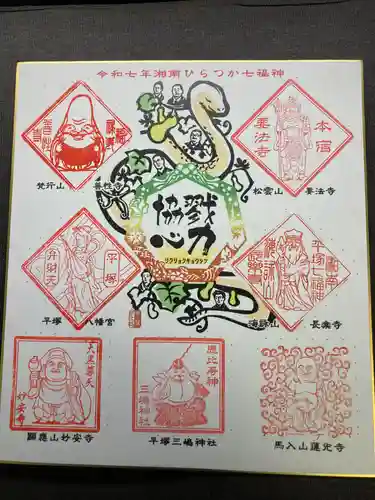 令和七年湘南ひらつか七福神
善性寺
福禄寿
梵行山 善性寺
要法寺
本宿
松雲山 要法寺
戮力
協心
リクリョクキョウシン
弁財天
平塚
平塚 八幡宮
平塚七福神
長楽寺
大黒尊天
妙安寺
顕應山妙安寺
恵比寿神
三嶋神社
平塚三嶋神社
馬入山蓮光寺